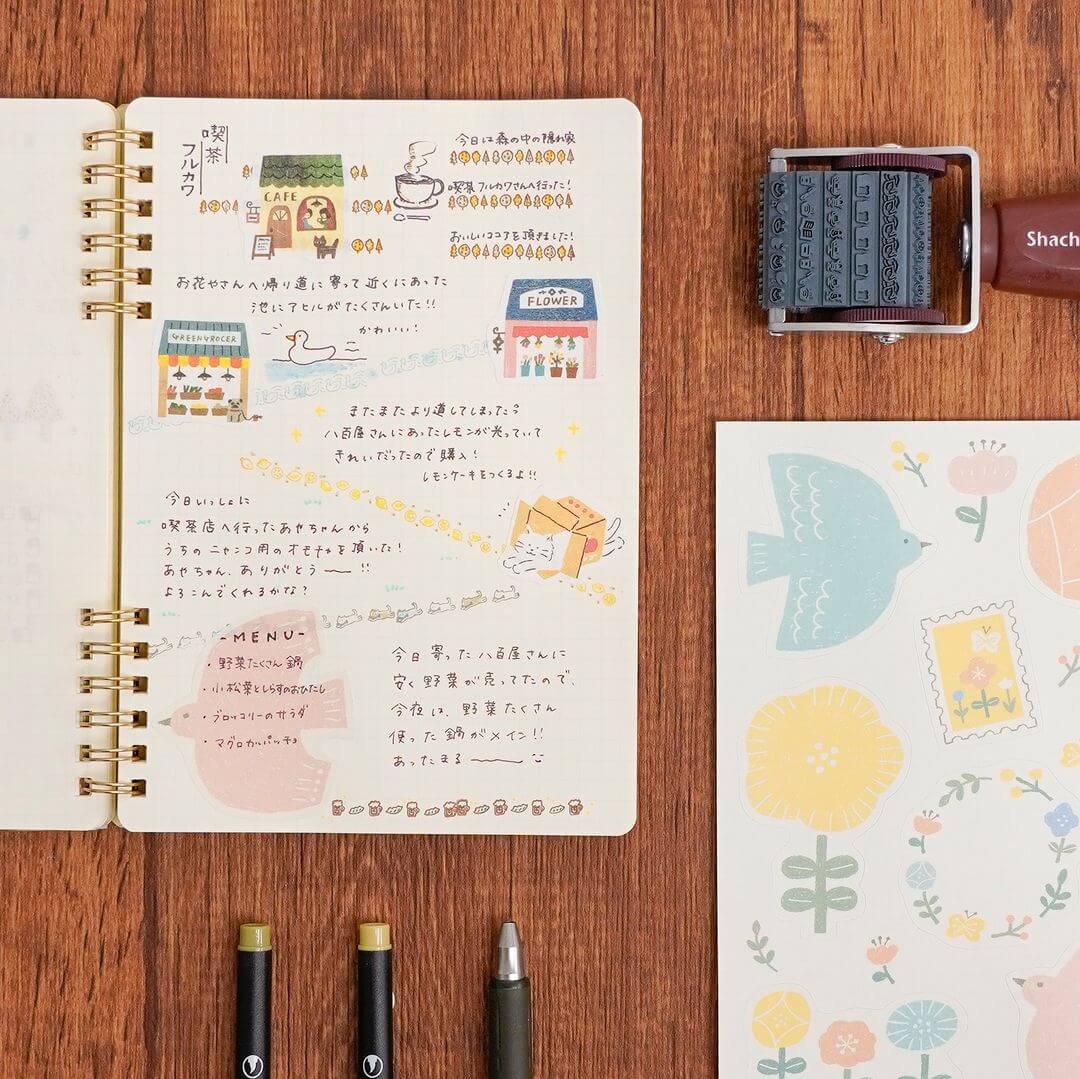 喫茶
フルカワ
CAFE
今日は森の中の隠れ家
喫茶フルカワさんへ行った!
おいしいココアを頂きました!
お花やさんへ帰り道に寄って近くにあった
池にアヒルがたくさんいた!!
かわいい!
FLOWER
GREENGROCER
またまたより道してしまった?
八百屋さんにあったレモンが光っていて
きれいだったので購入!
レモンケーキをつくるよ!!
今日いっしょに
喫茶店へ行ったあやちゃんから
うちのニャンコ用のオモチャを頂いた!
あやちゃん、ありがとう〜!!
よろこんでくれるかな?
-MENU-
・野菜たくさん鍋
・小松菜としらすのおひたし
・ブロッコリーのサラダ
・マグロカルパッチョ
今日寄った八百屋さんに
安く野菜が売ってたので、
今夜は、野菜たくさん
使った鍋がメイン!!
あったまる〜
Shach